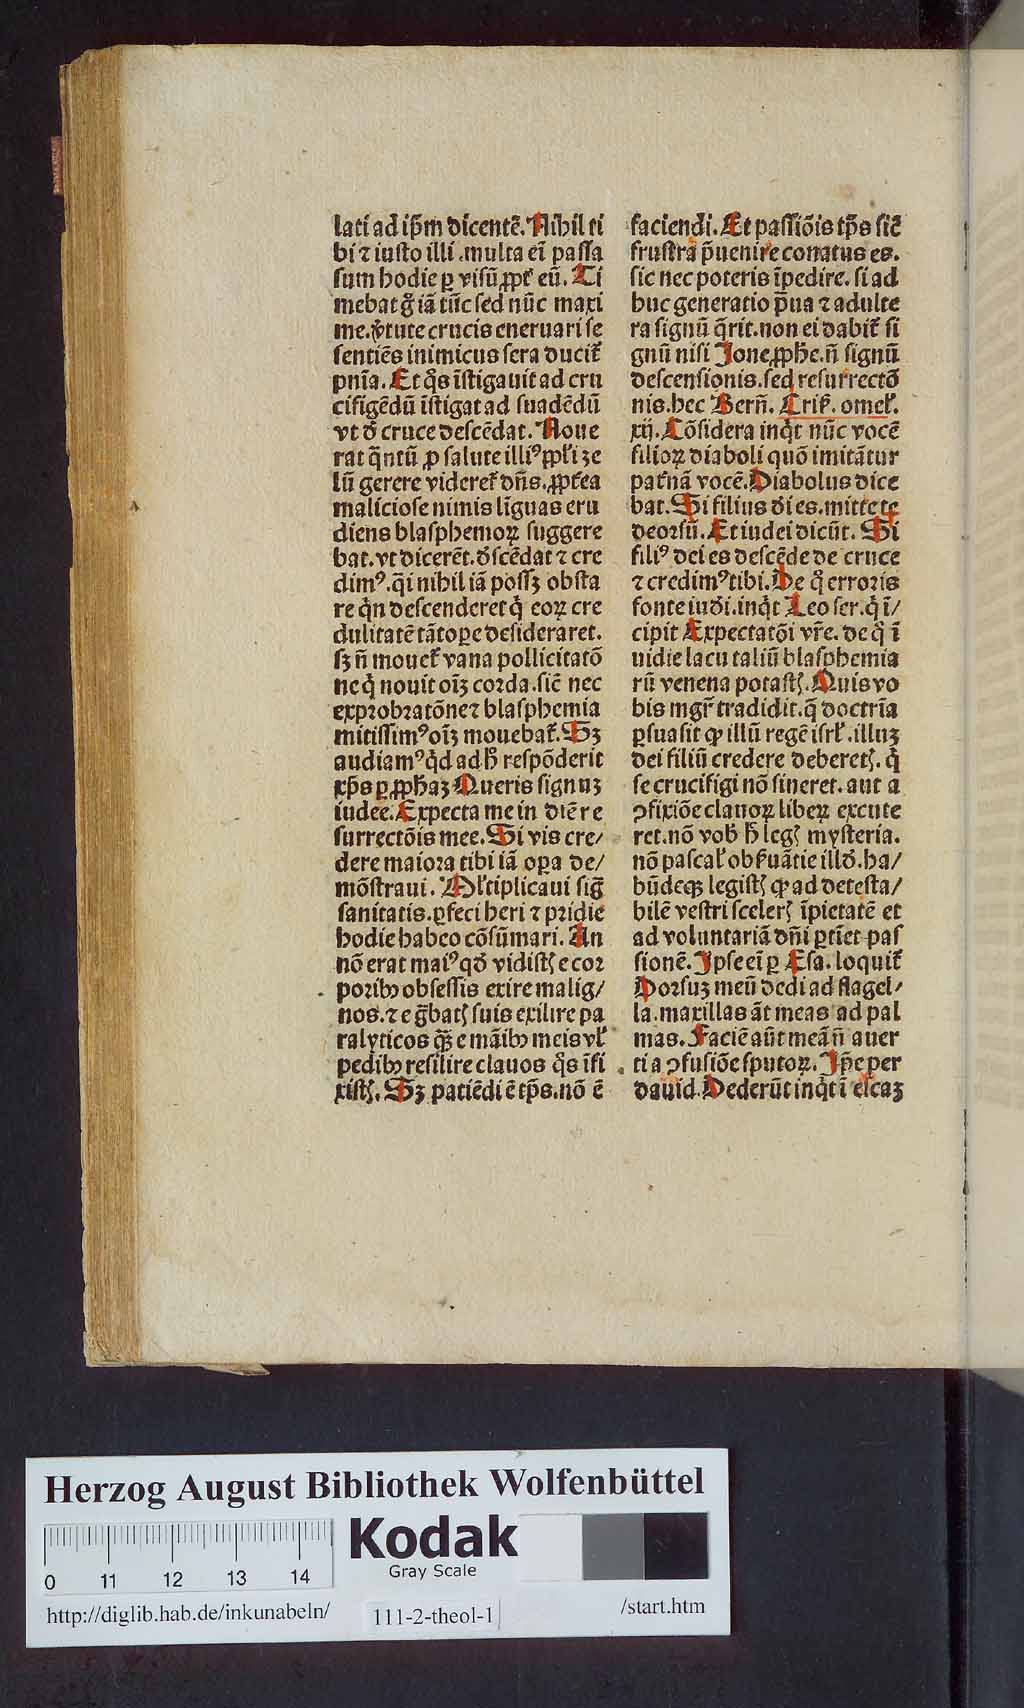 lati ad ip̄m dicentē. Nihil ti
bi ⁊ iusto illi .multa ei̅ passa
sum hodie ꝑ visū ꝓpt̄ eū. Ti
mebat g̊ iā tūc sed nūc maxi
me. v̄tute crucis eneruari se
sentiēs inimicus sera ducit̄
pnīa. Et q̊s īstigauit ad cru
cifigēdū īstigat ad suadēdū
vt d̄ cruce descēdat. Noue
rat q̄ntū ꝓ salute illiꝰ ppl̄i ze
lū gerere videret̄ dn̄s. ꝓpt̄ea
maliciose nimis līguas eru
diens blasphemoꝝ suggere
bat. vt dicerēt. d̄scēdat ⁊ cre
dimꝰ. q̄i nihil iā possꝫ obsta
re q̄n descenderet q̇ eoꝝ cre
dulitatē tātoꝑe desideraret.
sꝫ n̄ mouet̄ vana pollicitatō
ne q̇ nouit oīꝫ corda .sic̄ nec
exprobratōne ⁊ blasphemia
mitissimꝰ oīꝫ mouebat̄. Sꝫ
audiamꝰ q̇d ad h̄ respōderit
xp̄s ꝑ ꝓph̄aꝫ Queris signuꝫ
iudee. Expecta me in diē re
surrectōis mee. Si vis cre/
dere maiora tibi iā oꝑa de/
mōstraui. Ml̄tiplicaui siḡ
sanitatis. ꝑfeci heri ⁊ pridie
hodie habeo cōsūmari. An
nō erat maiꝰ qd̄ vidistꝭ e cor
poribꝰ obsessis exire malig/
nos. ⁊ e g̊batꝭ suis exilire pa
ralyticos q̄ꝫ e māibꝰ meis vl̄
pedibꝰ resilire clauos q̊s īfi
xistꝭ. Sꝫ patiēdi ē tp̄s. nō ē
faciendi. Et passiōis tp̄s sic̄
frustra p̄uenire conatus es.
sic nec poteris īpedire. si ad
huc generatio p̄ua ⁊ adulte
ra signū q̄rit. non ei dabit̄ si
gnū nisi Jone ꝓph̄e. n̄ signū
descensionis. sed resurrectō
nis. hec Bern̄. Criſ̄. omel̄.
xij. Cōsidera inq̇t nūc vocē
filioꝝ diaboli quō imitātur
pat̄nā vocē. Diabolus dice
bat. Si filius d̄i es. mitte te
deorsū. Et iudei dicūt. Si
filiꝰ dei es descēde de cruce
⁊ credimꝰ tibi. De q̊ erroris
fonte iud̄i. inq̇t Leo ser. q̇ ī/
cipit Expectatōi vr̄e. de q̊ ī
uidie lacu taliū blasphemia
rū venena potastꝭ. Quis vo
bis mgr̄ tradidit. q̄ doctrīa
ꝑsuasit ꝙ illū regē isrl̄. illuꝫ
dei filiū credere deberetꝭ. q̇
se crucifigi nō sineret. aut a
ꝯfixiōe clauoꝝ libeꝝ excute
ret. nō vob̄ h̄ legꝭ mysteria.
nō pascal̄ obſ̄uātie illd̄. ha/
būdeqꝫ legistꝭ ꝙ ad detesta/
bilē vestri scelerꝭ īpietatē et
ad voluntariā dn̄i ꝑtīet pas
sionē. Ipse ei̅ ꝑ Esa. loquit̄
Dorsuꝫ meū dedi ad flagel/
la. maxillas āt meas ad pal
mas. Faciē aūt meā n̄ auer
ti a ꝯfusiōe sputoꝝ. Ip̄e per
dauid. Dederūt inq̇t ī escaꝫ
Herzog August Bibliothek Wolfenbüttel
Kodak
Gray Scale
0 11 12 13 14
http://diglib.hab.de/inkunabeln/ 111-2-theol-1 /start.htm